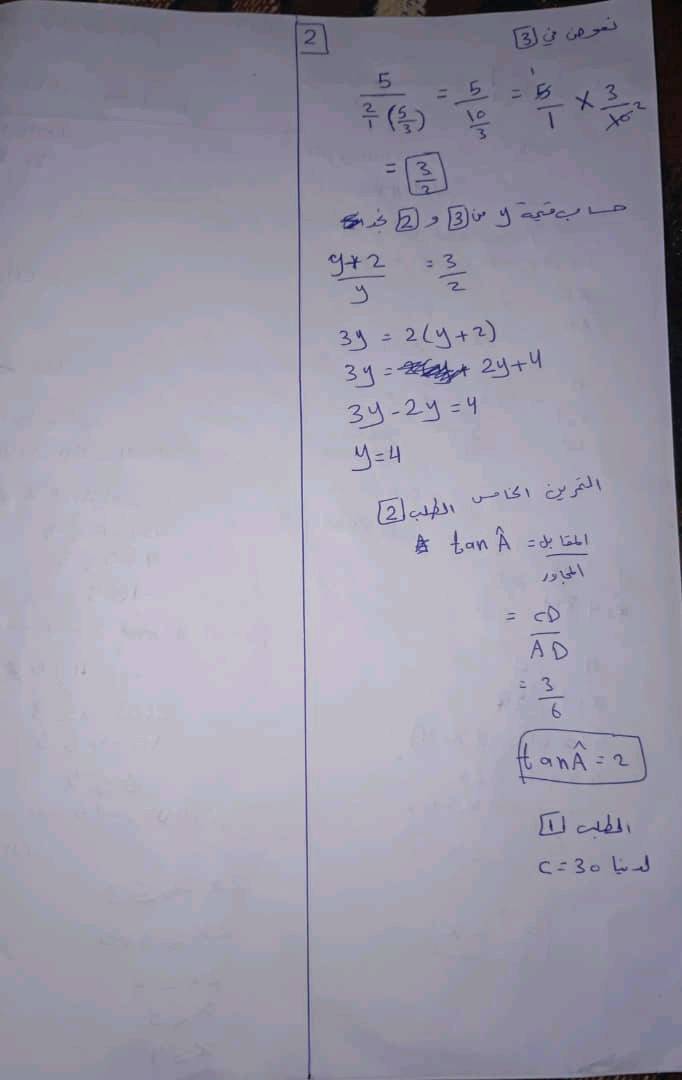 2
نعوض في 3
5 / (2/1 (5/3)) = 5 / (10/3) = 5/1 × 3/10 1 2
= 3/2
حساب قيمة y من 3 و 2 نجد
y+2 / y = 3/2
3y = 2(y+2)
3y = 2y+4
3y-2y=4
y=4
التمرين الخامس الطلب 2
tan Â = المقابل / المجاور
= CD / AD
= 3/6
tan Â = 2
الطلب 1
لدينا C=30